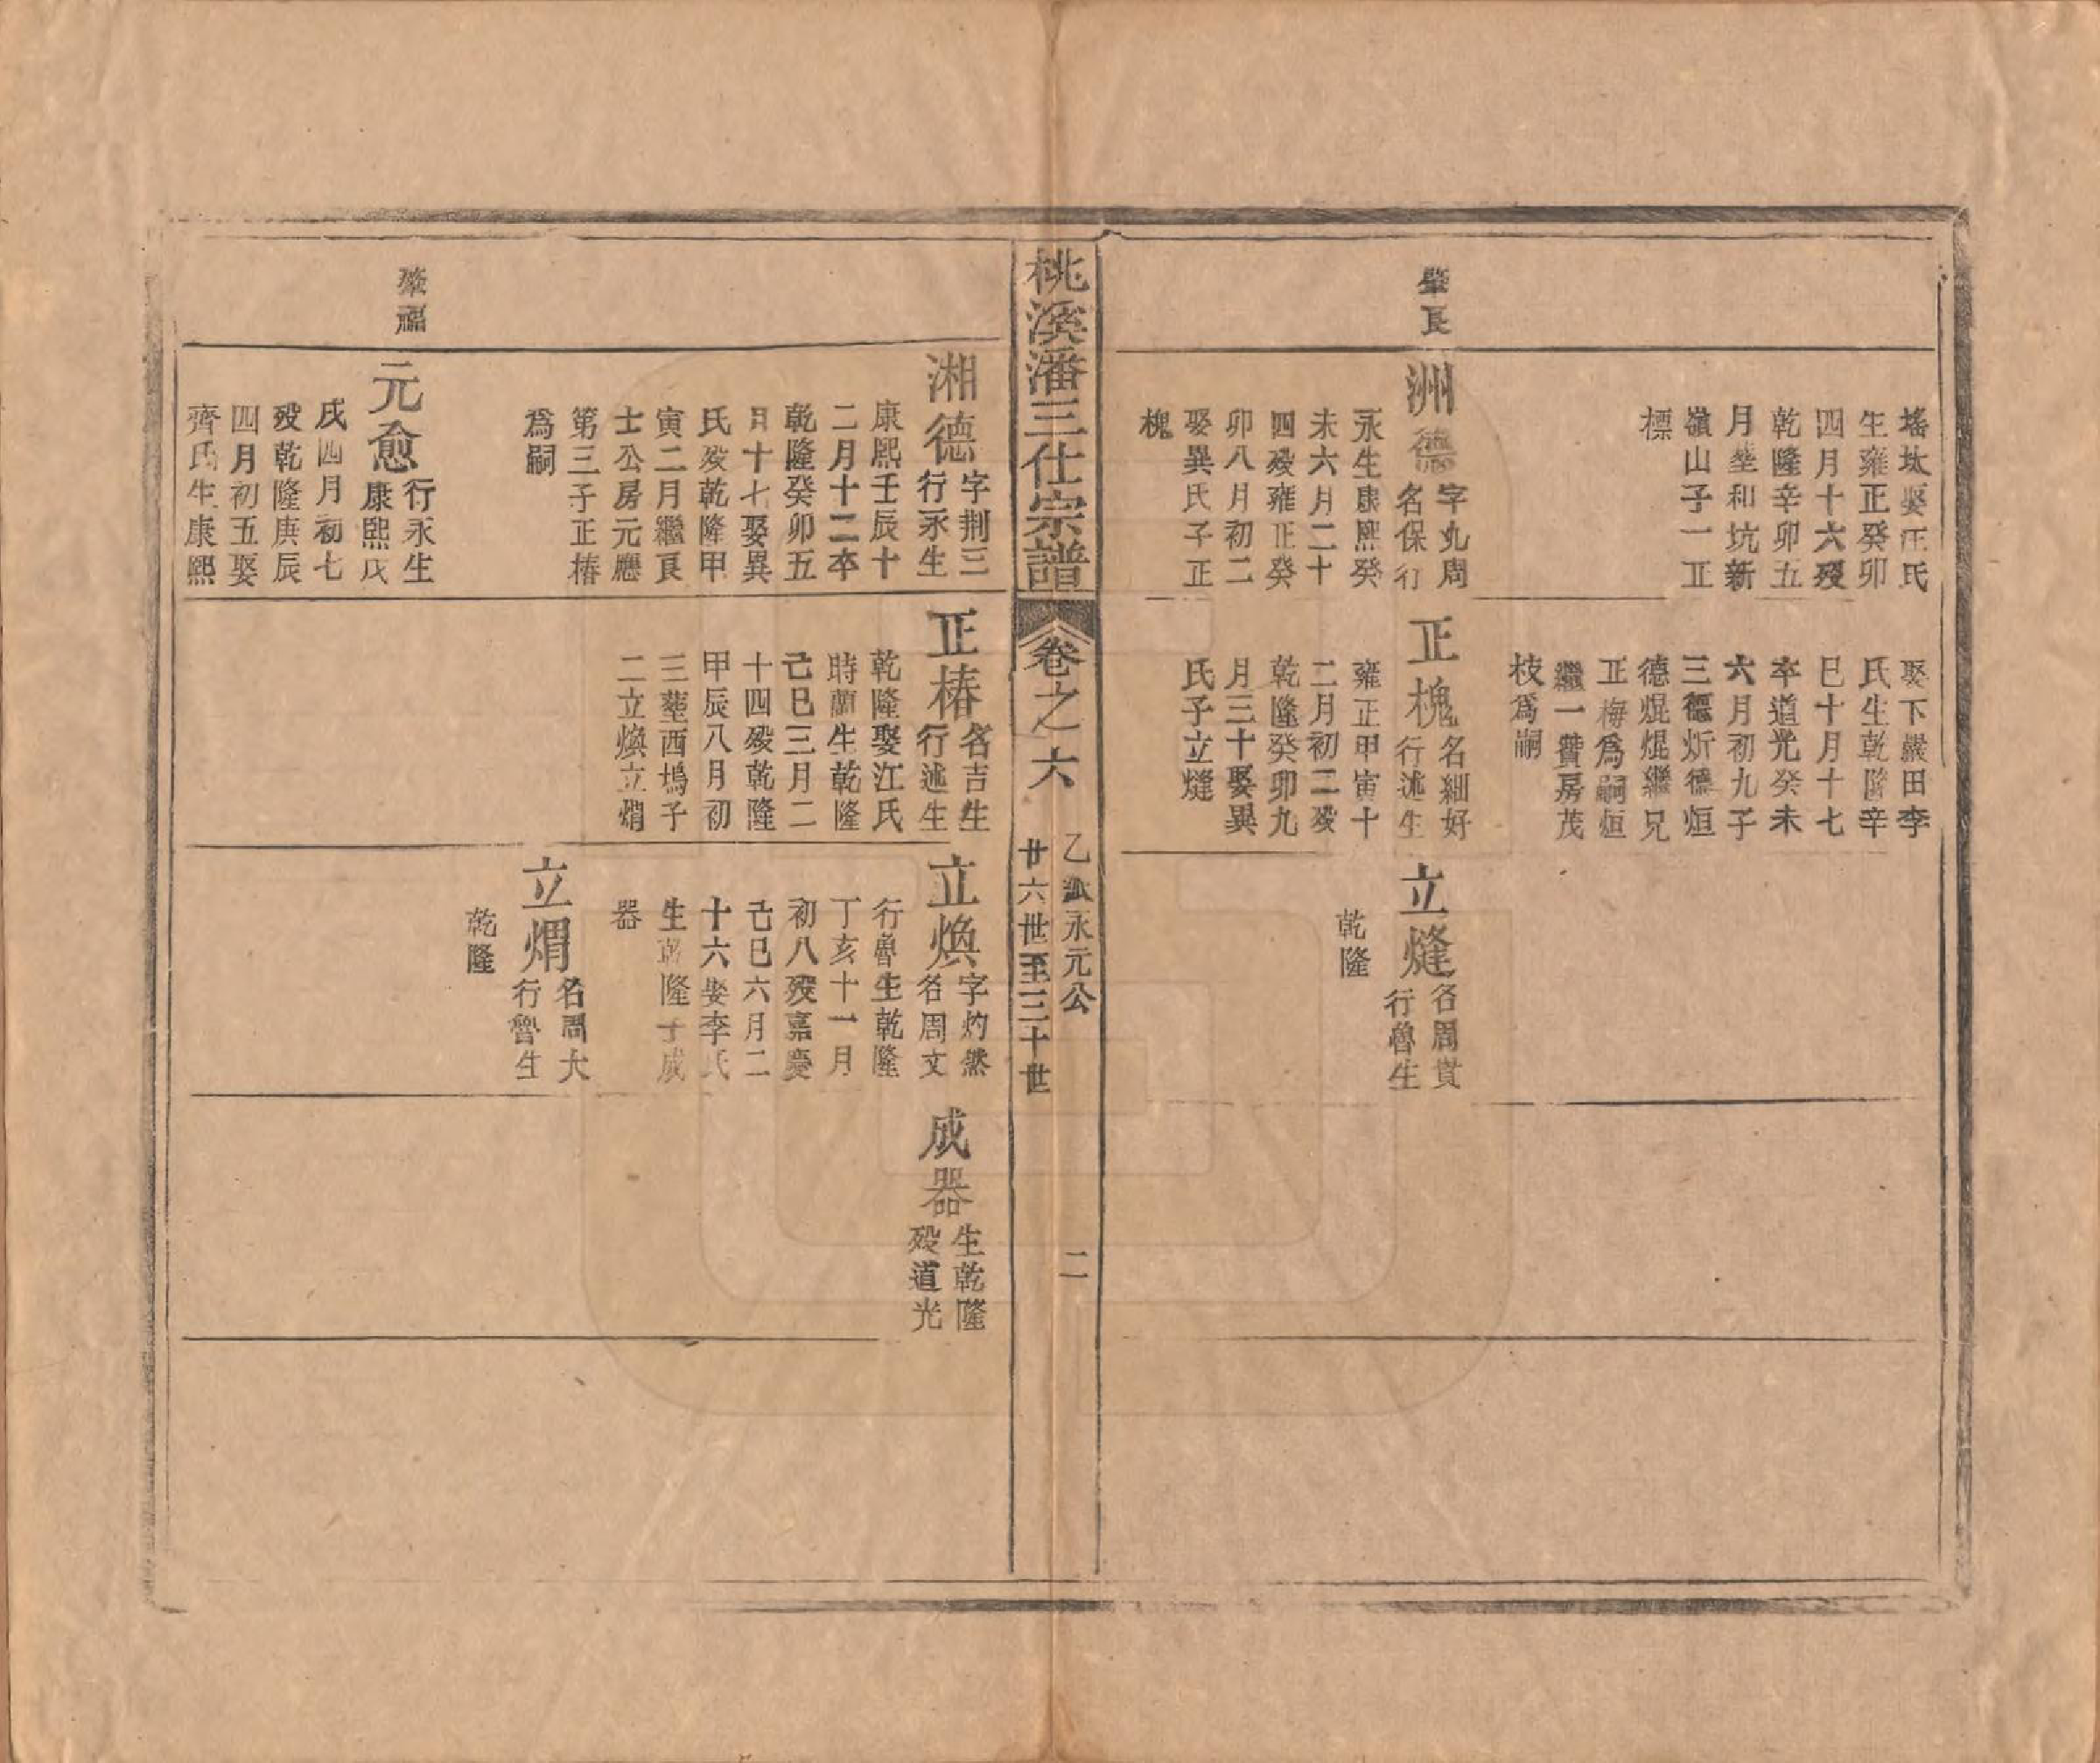 肇良
塟墳娶汪氏
生雍正癸卯
四月十六殁
乾隆辛卯五
月塟和坑新
嶺山子一正
標
洲德
字丸周
名保行
永生康熙癸
未六月二十
四殁雍正癸
卯八月初二
娶異氏子正
槐
娶下嚴田李
氏生乾隆辛
巳十月十七
卒道光癸未
六月初九子
三德炘德烜
德焜焜繼兄
正梅爲嗣烜
繼一贊房茂
枝爲嗣
正槐
名細好
行述生
雍正甲寅十
二月初二殁
乾隆癸卯九
月三十娶異
氏子立熢
立熢
名周貴
行魯生
乾隆
桃溪潘三仕宗譜
卷之六
乙派永元公
廿六世至三十世
二
湘德
字荆三
行永生
康熙壬辰十
二月十二卒
乾隆癸卯五
月十七娶異
氏殁乾隆甲
寅二月繼良
士公房元應
第三子正椿
爲嗣
肇福
元愈
行永生
康熙戊
戌四月初七
殁乾隆庚辰
四月初五娶
齊氏生康熙
正椿
名吉生
行述生
乾隆娶江氏
時蘭生乾隆
己巳三月二
十四殁乾隆
甲辰八月初
三塟西塢子
二立煥立焆
立煥
字灼然
名周文
行魯生乾隆
丁亥十一月
初八殁嘉慶
己巳六月二
十六娶李氏
生乾隆子成
器
立焆
名周大
行魯生
乾隆
成器
生乾隆
殁道光